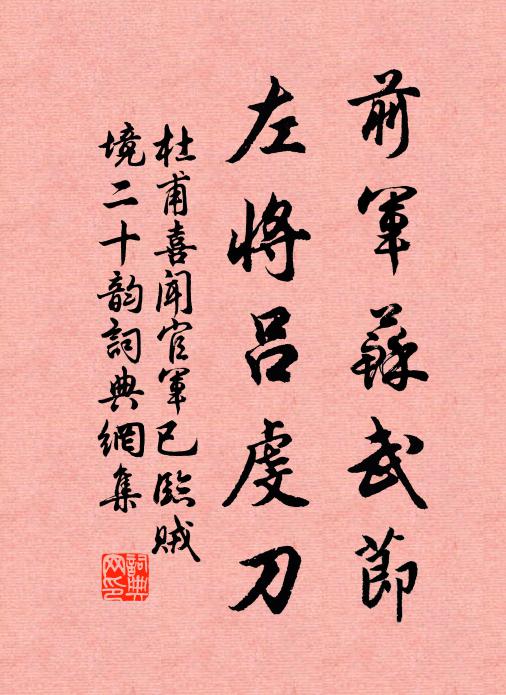 前軍蘇武節
左將呂虔刀
杜甫喜聞官軍已臨賊
境二十韵詞典網集
詞典
网印